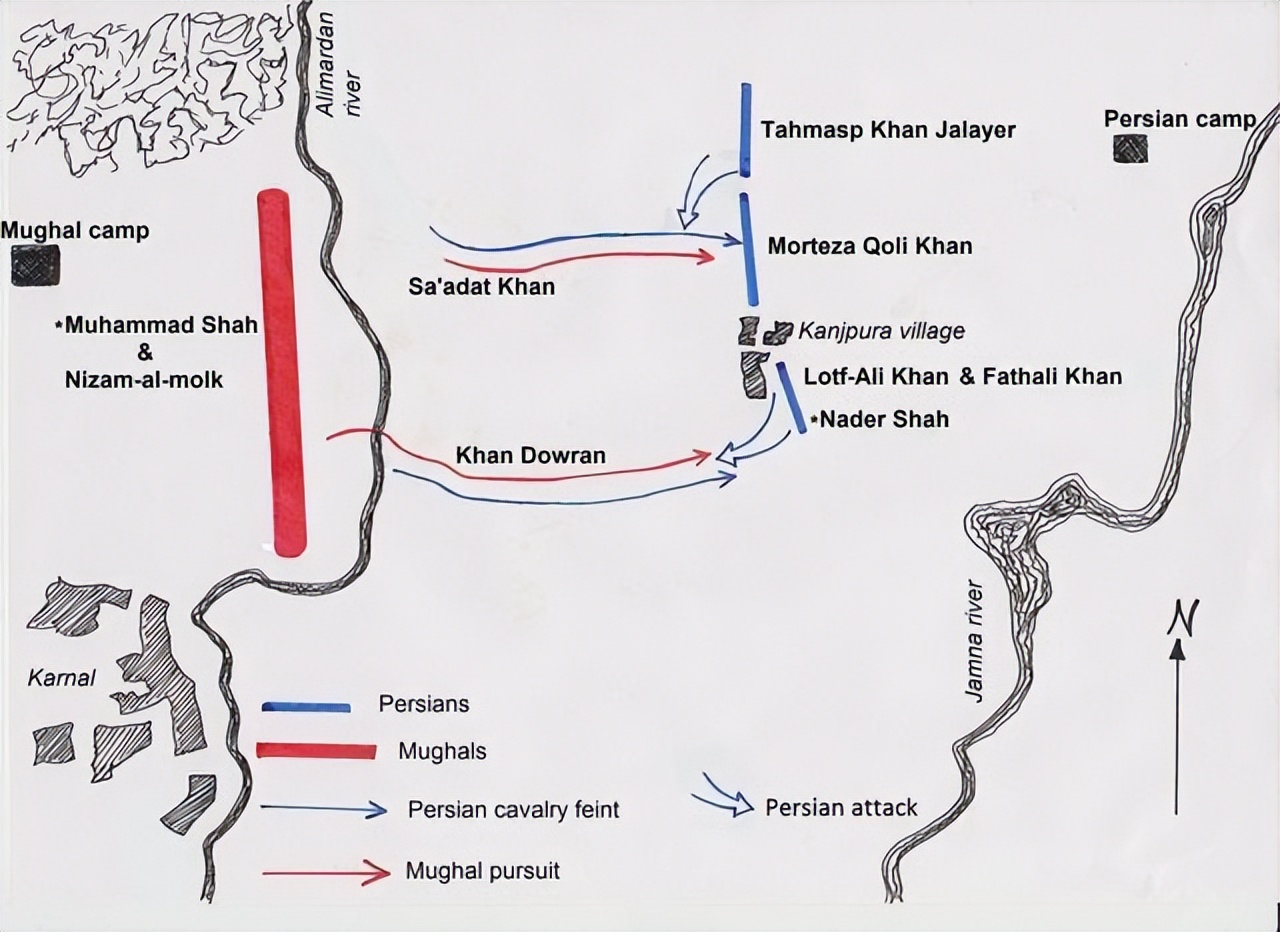 Alimardan
river
Tahmasp Khan Jalayer
Persian camp
Mughal camp
Morteza Qoli Khan
Sa'adat Khan
*Muhammad Shah
&
Nizam-al-molk
Kanjpura village
Lotf-Ali Khan & Fathali Khan
*Nader Shah
Khan Dowran
Jamna river
N
Karnal
Persians
Mughals
Persian cavalry feint
Persian attack
Mughal pursuit